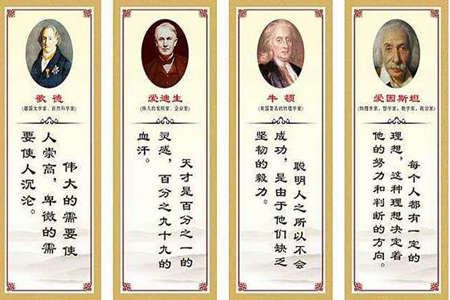 歌德
(德国文学家、自然科学家)
伟大的需要使
人崇高，卑微的需
要使人沉沦。
爱迪生
天才是百分之一的
灵感，百分之九十九的
血汗。
牛顿
(英国著名的物理学家)
聪明人之所以不会
成功，是由于他们缺乏
坚韧的毅力。
爱因斯坦
每个人都有一定的
理想，这种理想决定着
他的努力和判断的方向。